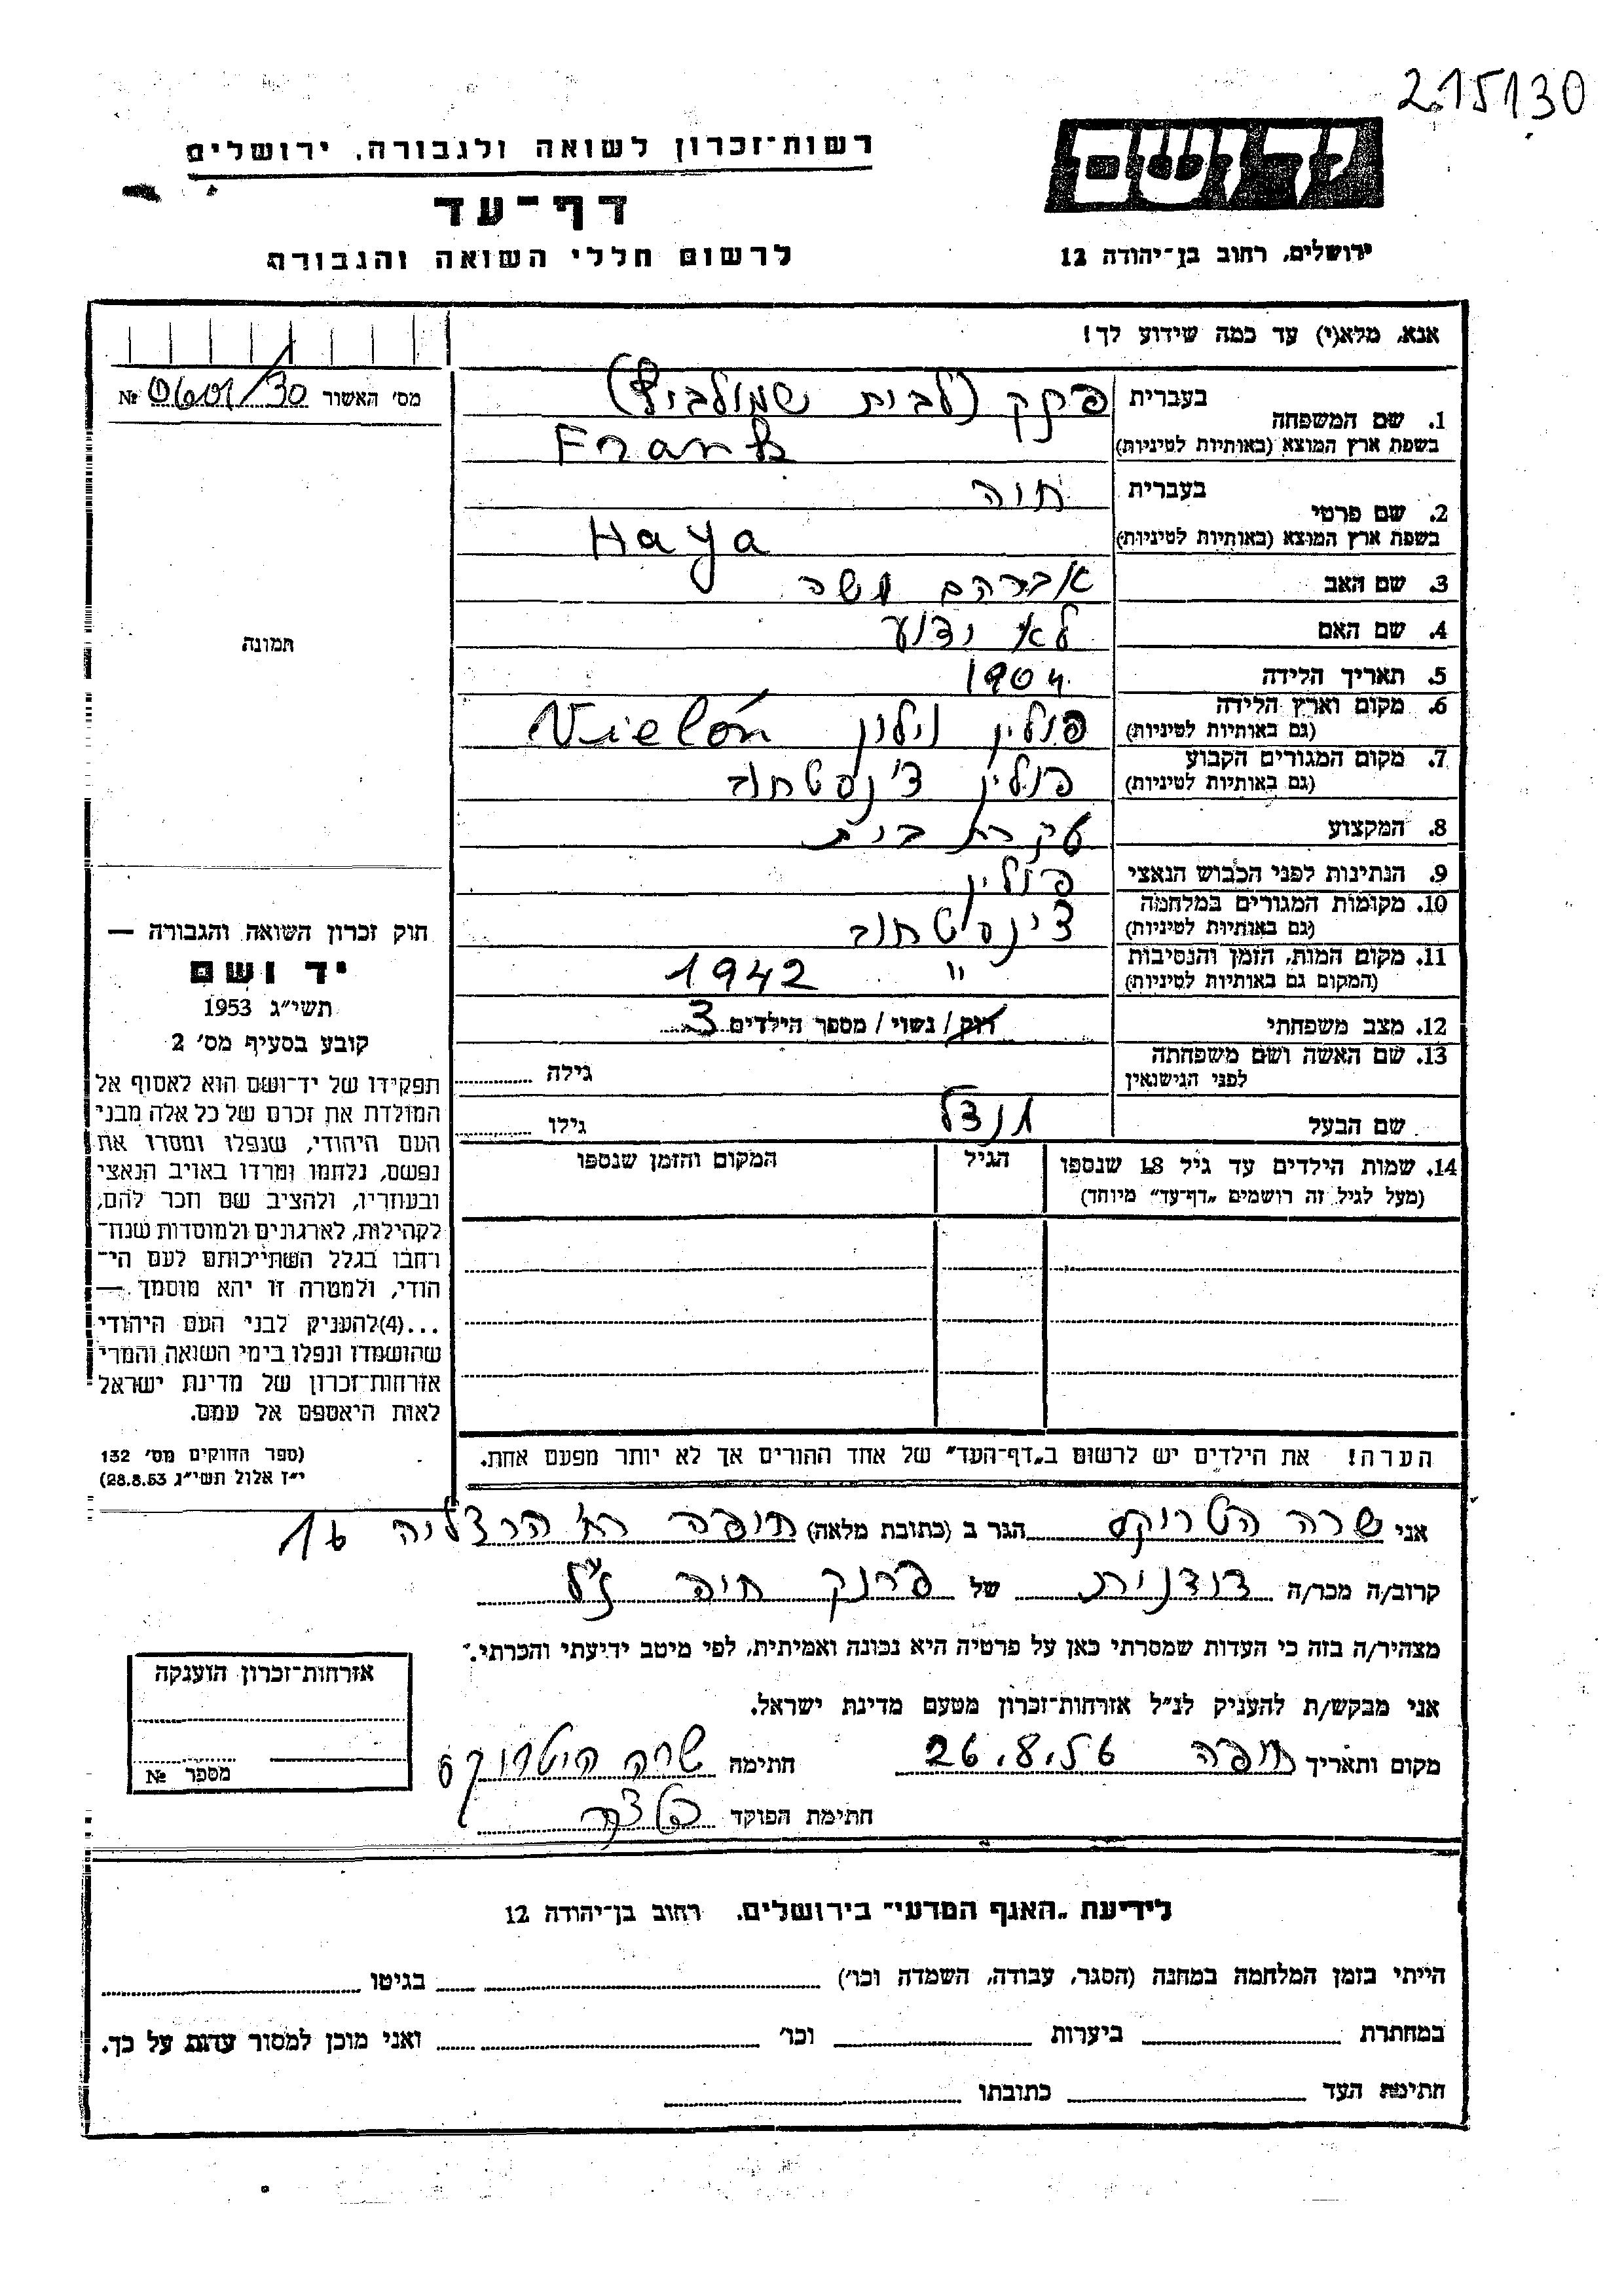 215130
רשות־זכרון לשואה ולגבורה, ירושלים
יד ושם
דף־עד
לרשום חללי השואה והגבורה
ירושלים, רחוב בן־יהודה 12
אנא, מלא(י) עד כמה שידוע לך!
מס׳ האשור № 0601/30
1. שם המשפחה
בעברית פרנק (לבית שמולביץ)
בשפת ארץ המוצא (באותיות לטיניות) Frank
2. שם פרטי
בעברית חיה
בשפת ארץ המוצא (באותיות לטיניות) Haya
3. שם האב אברהם משה
4. שם האם לא ידוע
5. תאריך הלידה 1904
6. מקום וארץ הלידה
(גם באותיות לטיניות) פולין וילון Vielón
7. מקום המגורים הקבוע
(גם באותיות לטיניות) פולין צ'נסטחוב
8. המקצוע עקרת בית
9. הנתינות לפני הכבוש הנאצי פולין
10. מקומות המגורים במלחמה
(גם באותיות לטיניות) צ'נסטחוב
11. מקום המות, הזמן והנסיבות
(המקום גם באותיות לטיניות) " 1942
12. מצב משפחתי רוק / נשוי / מספר הילדים 3
13. שם האשה ושם משפחתה
לפני הנישואין גילה
שם הבעל מנדל גילו
14. שמות הילדים עד גיל 18 שנספו
(מעל לגיל זה רושמים „דף־עד" מיוחד)
הגיל
המקום והזמן שנספו
הערה! את הילדים יש לרשום ב„דף־העד" של אחד ההורים אך לא יותר מפעם אחת.
תמונה
חוק זכרון השואה והגבורה —
יד ושם
תשי"ג 1953
קובע בסעיף מס׳ 2
תפקידו של יד־ושם הוא לאסוף אל
המולדת את זכרם של כל אלה מבני
העם היהודי, שנפלו ומסרו את
נפשם, נלחמו ומרדו באויב הנאצי
ובעוזריו, ולהציב שם וזכר להם,
לקהילות, לארגונים ולמוסדות שנח־
רחבו בגלל השתייכותם לעם הי־
הודי, ולמטרה זו יהא מוסמך —
...(4)להעניק לבני העם היהודי
שהושמדו ונפלו בימי השואה והמרי
אזרחות־זכרון של מדינת ישראל
לאות היאספם אל עמם.
(ספר החוקים מס׳ 132
י"ז אלול תשי"ג 28.8.53)
אני שרה הטרוקס הגר ב (כתובת מלאה) חיפה רח' הרצליה 16
קרוב/ה מכר/ה דודנית של פרנק חיה ז"ל
מצהיר/ה בזה כי העדות שמסרתי כאן על פרטיה היא נכונה ואמיתית, לפי מיטב ידיעתי והכרתי.
אני מבקש/ת להעניק לנ"ל אזרחות־זכרון מטעם מדינת ישראל.
מקום ותאריך חיפה 26.8.56 חתימה שרה היטרוקס
חתימת הפוקד
אזרחות־זכרון הוענקה
מספר №
לידיעת „האגף המדעי" בירושלים, רחוב בן־יהודה 12
הייתי בזמן המלחמה במחנה (הסגר, עבודה, השמדה וכו׳) בגיטו
במחתרת ביערות וכו׳ ואני מוכן למסור עדות על כך.
חתימת העד כתובתו